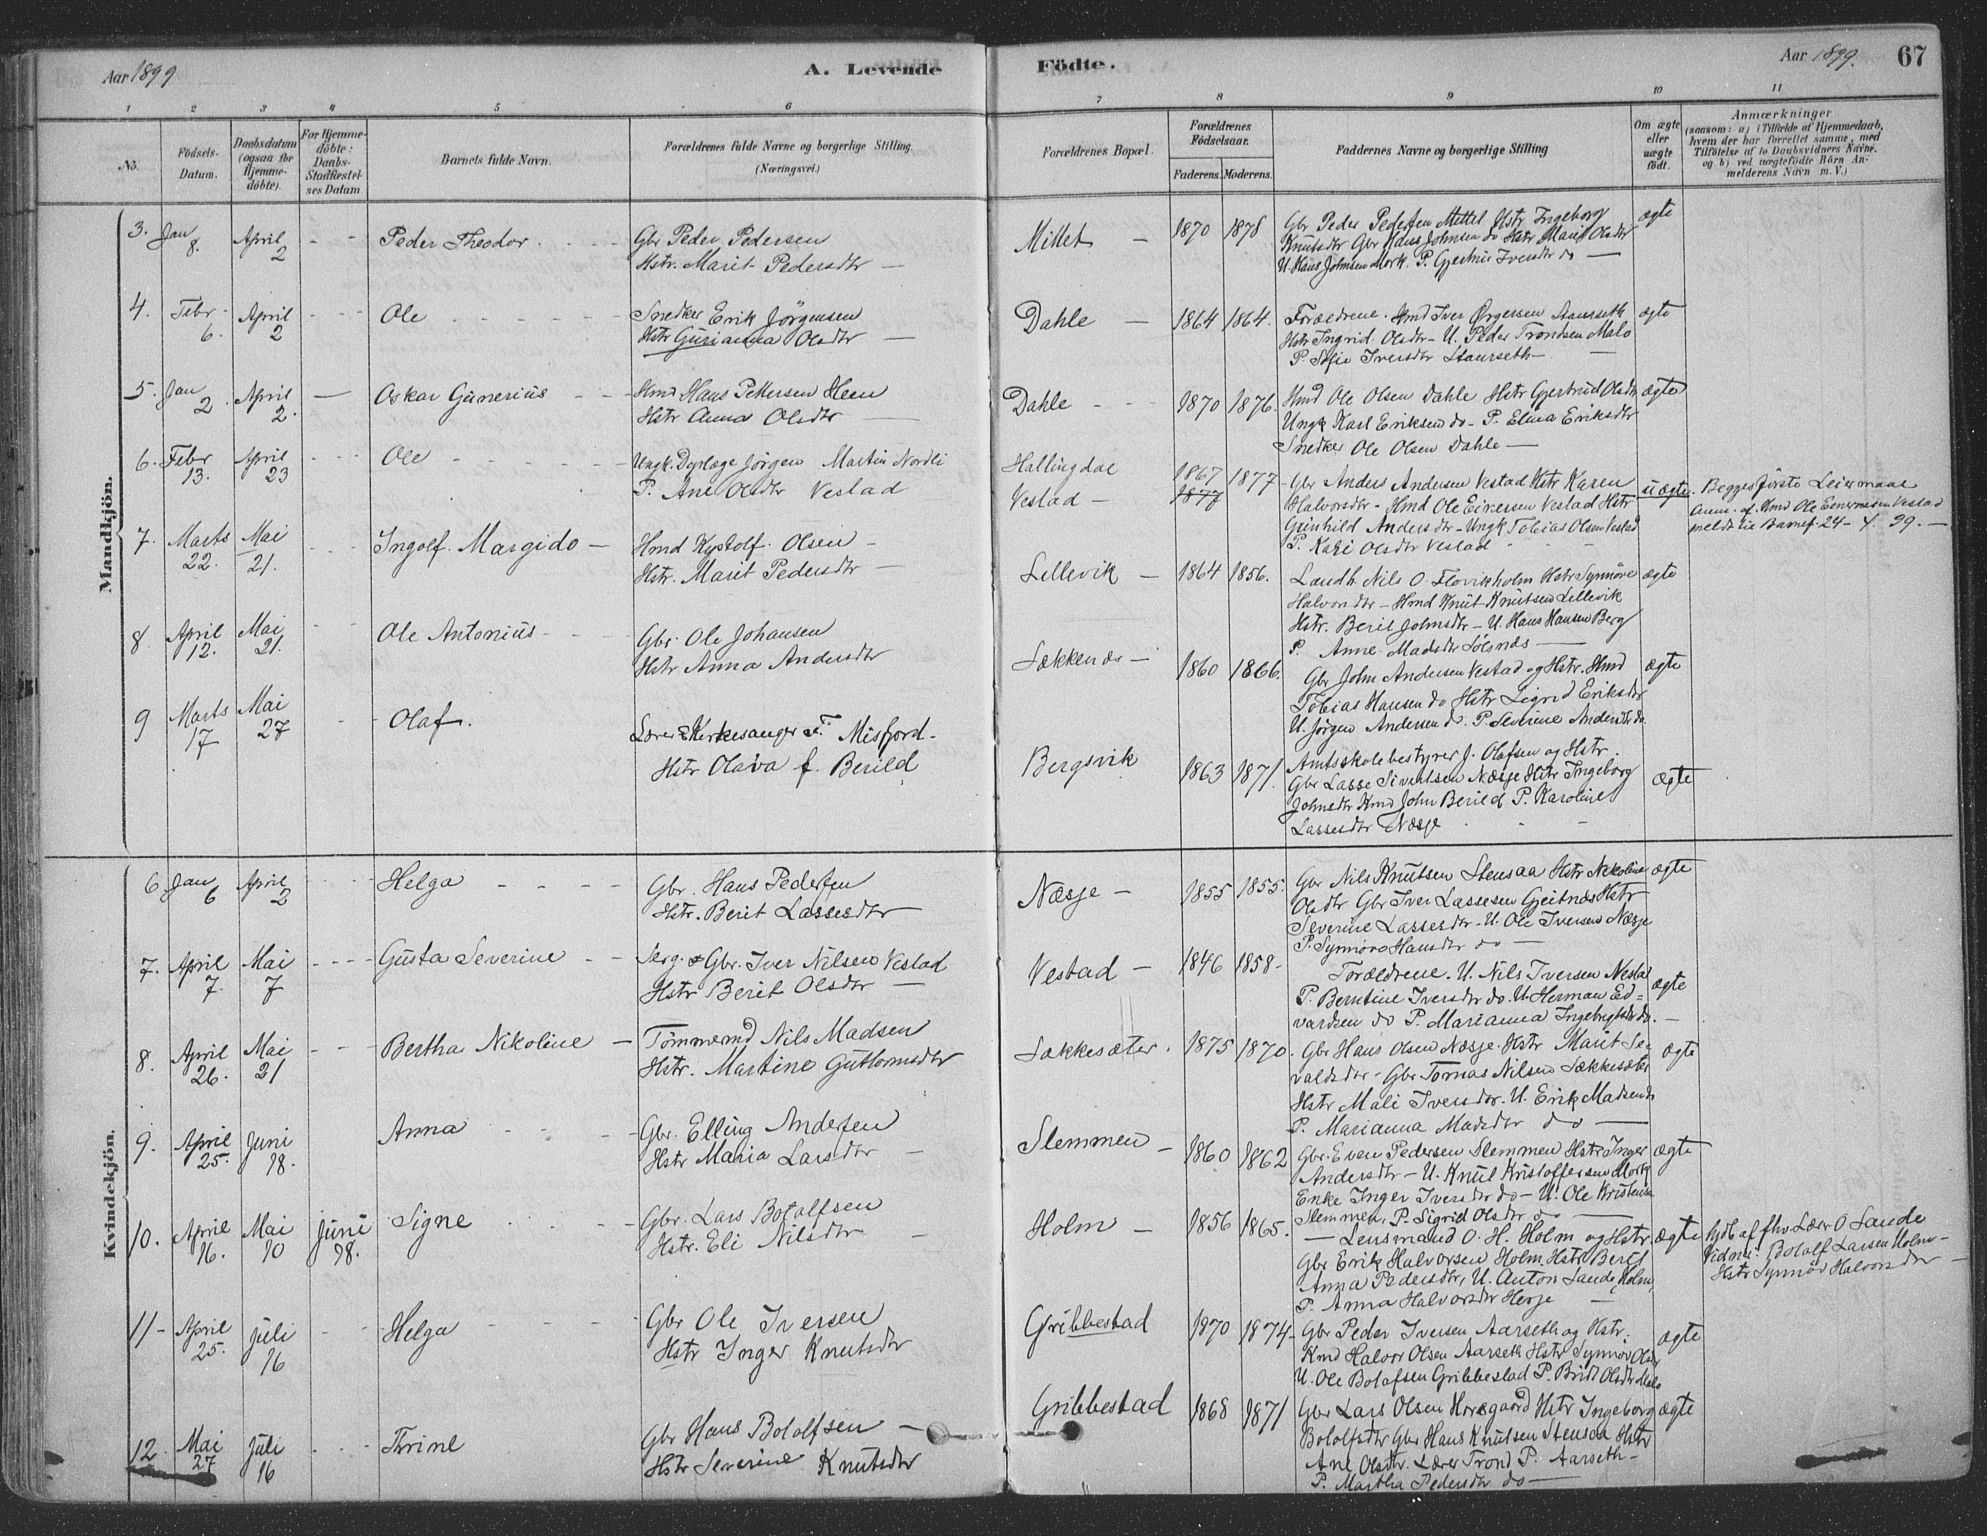 Aar 1899
A. Levende
Födte.
Aar 1899.
67
1 2 3 4 5 6 7 8 9 10 11
No.
Födsels-Datum.
Daabsdatum (ogsaa for Hjemmedöbte).
For Hjemmedöbte: Daabs-Stadfæstelses Datum
Barnets fulde Navn.
Forældrenes fulde Navne og borgerlige Stilling. (Næringsvei.)
Forældrenes Bopæl.
Forældrenes Födselsaar.
Faderens. Moderens.
Faddernes Navne og borgerlige Stilling
Om ægte eller uægte födt.
Anmærkninger
(saasom: a) i Tilfælde af Hjemmedaab, hvem der har forrettet samme, med Tilföielse af to Daabsvidners Navne. og b) ved uægtefödte Börn Anmelderens Navn m. V.)
Mandkjön.
3. Jan 8. April 2 - - Peder Theodor
Gbr Peder Pedersen
Hstr. Marit Pedersdtr —
Mittet — 1870 1878
Gbr Peder Pedersen Mittet Hstr Ingeborg
Knutsdtr Gbr Hans Johnsen do Hstr Marit Olsdtr
U. Hans Johnsen Mork. P. Gjertine Iversdtr do —
ægte
4. Febr 6. April 2 - - - Ole
Snedker Erik Jörgensen
Hstr Gurianna Olsdtr —
Dahle — 1864 1864.
Forældrene. Hmd Iver Ørgersen Staurseth
Hstr Ingrid Olsdtr - U. Peder Trondsen Malo
P. Sofie Iversdtr Staurseth —
ægte
5. Jan 2. April 2. — Oskar Gunerius
Hmd Hans Pettersen Heen
Hstr Anna Olsdtr
Dahle - - - 1870 1876.
Hmd Ole Olsen Dahle Hstr Gjertrud Olsdtr
Ungk Karl Eriksen do - P. Elina Eriksdtr
Snedker Ole Olsen Dahle —
ægte
6. Febr 13. April 23 - - - Ole
Ungk. Dyrlæge Jörgen Martin Nordli
P. Ane Olsdtr Vestad
Hallingdal
Vestad — 1867 1877 1877
Gbr Anders Andersen Vestad Hstr Karen
Halvorsdtr - Hmd Ole Einersen Vestad Hstr
Gunhild Andersdtr - Ungk Tobias Olsen Vestad
P. Kari Olsdtr Vestad
uægte.
Begges förste Leiermaal
Anm. af Hmd Ole Einersen Vestad
meldt til Barnef. 24-4.99. —
7. Marts 22. Mai 21. Ingolf Margido —
Hmd Kystolf Olsen —
Hstr. Marit Pedersdtr —
Lillevik — 1864 1856.
Landh Nils O. Flovikholm Hstr Synnöve
Halvorsdtr - Hmd Knut Knutsen Lillevik
Hstr. Berit Johnsdtr - U. Hans Hansen Berg
P. Anne Madsdtr Sölsnæs —
ægte
8 April 12. Mai 21. Ole Antonius -
Gbr. Ole Johansen
Hstr Anna Andersdtr
Sækkenæs — 1860 1866.
Gbr John Andersen Vestad og Hstr. Hmd
Tobias Hansen do Hstr Sigrid Eriksdtr
U. Jörgen Andersen do. P. Severine Andersdtr do
ægte
9 Marts 17 Mai 27 Olaf.
Lærer & Kirkesanger T. Misfjord -
Hstr Olava f. Berild
Bergsvik 1863 1871.
Amtsskolebestyrer J. Olafsen og Hstr.
Gbr Lasse Sivertsen Næsje Hstr Ingeborg
Johnsdtr Hmd John Berild P. Karoline
Lassesdtr Næsje
ægte
Kvindekjön.
6. Jan 6 April 2 Helga - - - -
Gbr. Hans Pedersen
Hstr. Berit Lassesdtr —
Næsje — 1855 1855.
Gbr Nils Knutsen Stensaa Hstr Nikoline
Olsdtr Gbr Iver Lassesen Gjeitnæs Hstr
Severine Lassesdtr - U. Ole Iversen Næsje
P. Synnöve Hansdtr do —
ægte
7. April 7. Mai 7 - - - Gusta Severine - -
Serg. & Gbr. Iver Nilsen Vestad
Hstr Berit Olsdtr —
Vestad — 1846 1858-
Forældrene. U. Nils Iversen Vestad
P. Berntine Iversdtr do. U. Herman Ed=
vardsen do P. Marianna Ingebrigtsdtr do. —
ægte
8. April 26. Mai 21 - - - Bertha Nikoline —
Tömmermd Nils Madsen
Hstr. Martine Guttormsdtr
Sækkesæter. 1875 1870.
Gbr Hans Olsen Næsje. Hstr Marit Se=
valdsdtr - Gbr Tomas Nilsen Sækkesæter
Hstr Mali Iversdtr. U. Erik Madsen do
P. Marianna Madsdtr do —
ægte
9. April 25. Juni 18. Anna - - - -
Gbr. Elling Andersen
Hstr Maria Larsdtr —
Slemmen — 1860 1862
Gbr. Even Pedersen Slemmen Hstr Inger
Andersdtr - U. Knut Kristoffersen Mork
Enke Inger Iversdtr do - U. Ole Kristensen
Slemmen. P. Sigrid Olsdtr do —
ægte
10. April 16. Mai 10 Juni 18. Signe
Gbr. Lars Bolalfsen
Hstr. Eli Nilsdtr —
Holm — 1856 1865.
— Lensmand O. H. Holm og Hstr
Gbr Erik Halvorsen Holm. Hstr Berit
Anna Pedersdtr, U. Anton Sande, Holm,
P. Anna Halvorsdtr Herje —
ægte
Hjdb af fhv Lærer O Sande
Vidner: Bolalf Larsen Holm -
Hstr Synnöv Halvorsdtr —
11- April 25. Juli 16 Helga - - -
Gbr Ole Iversen
Hstr Inger Knutsdtr
Gribbestad 1870 1874-
Gbr Peder Iversen Aarseth og Hstr.
Hmd Halvor Olsen Aarseth Hstr Synnöv Olsdtr
U. Ole Bolafsen Gribbestad P. Brit Olsdtr Malo
ægte
12. Mai 27 Juli 16 - - - Trine
Gbr Hans Bolalfsen —
Hstr Severine Knutsdtr
Gribbestad 1868 1871
Gbr Lars Olsen Horsgaard Hstr Ingeborg
Bolalfsdtr Gbr Hans Knutsen Stensaa Hstr
Ane Olsdtr. Lærer Trond P. Aarseth -
P. Martha Pedersdtr do —
ægte